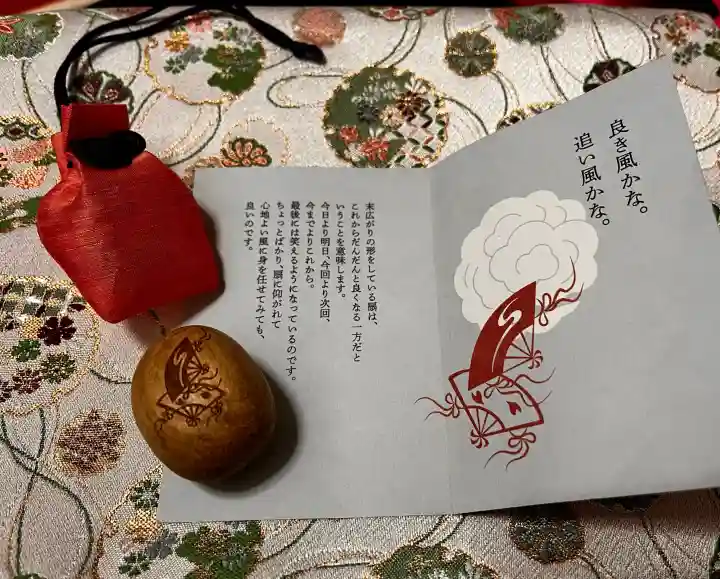 良き風かな。
追い風かな。
末広がりの形をしている扇は、
これからだんだんと良くなる一方だと
いうことを意味します。
今日より明日、今回より次回、
今までよりこれから。
最後には笑えるようになっているのです。
ちょっとばかり、扇に仰がれて
心地よい風に身を任せてみても、
良いのです。